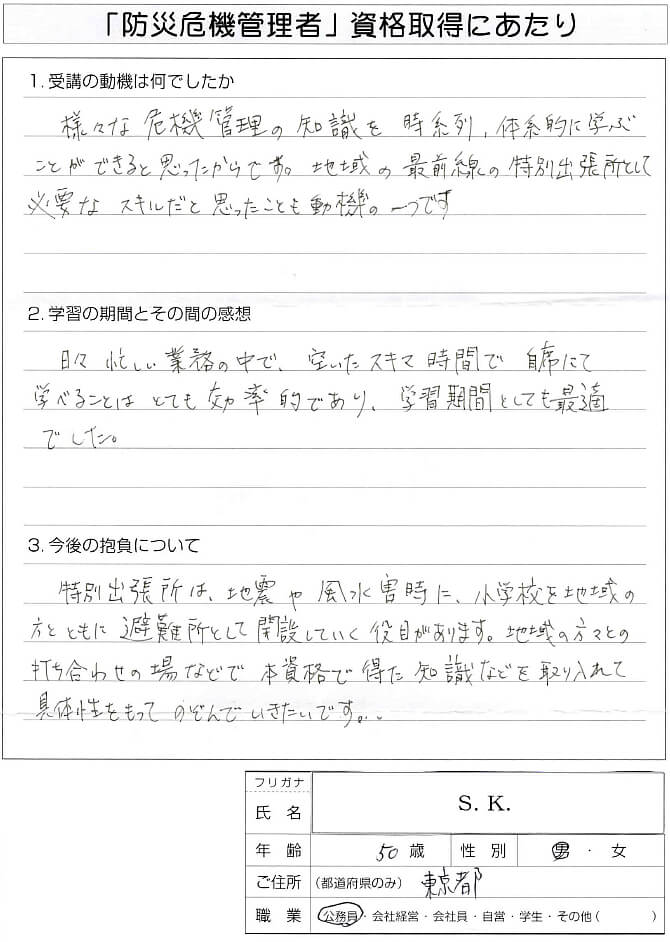 「防災危機管理者」資格取得にあたり
1. 受講の動機は何でしたか
様々な危機管理の知識を時系列、体系的に学ぶ
ことができると思ったからです。地域の最前線の特別出張所として
必要なスキルだと思ったことも動機の一つです
2. 学習の期間とその間の感想
日々忙しい業務の中で、空いたスキマ時間で自席にて
学べることはとても効率的であり、学習期間としても最適
でした。
3. 今後の抱負について
特別出張所は、地震や風水害時に、小学校を地域の
方とともに避難所として開設していく役目があります。地域の方々との
打ち合わせの場などで本資格で得た知識などを取り入れて
具体性をもってのぞんでいきたいです。.
フリガナ
氏名 S. K.
年齢 50歳 性別 男・女
ご住所 (都道府県のみ) 東京都
職業 公務員・会社経営・会社員・自営・学生・その他( )